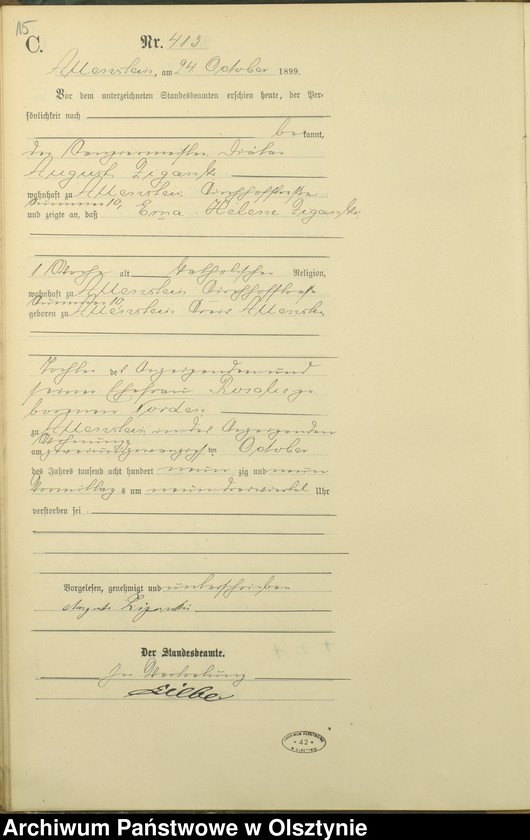 15
C.
Nr. 413
Allenstein, am 24 October 1899.
Vor dem unterzeichneten Standesbeamten erschien heute, der Per-
sönlichkeit nach
bekannt,
der
August Ziganski
wohnhaft zu Allenstein Bahnhofstraße
Nummer 10,
und zeigte an, daß Erna Helene Ziganski
1 Woche alt katholischer Religion,
wohnhaft zu Allenstein
Nummer 10
geboren zu Allenstein Kreis Allenstein
Tochter des Anzeigenden und
seiner Ehefrau Rosalie ge
borenen Norden
zu Allenstein in des Anzeigenden
Wohnung
am zweiundzwanzigsten October
des Jahres tausend acht hundert neunzig und neun
Vormittags um Uhr
verstorben sei
Vorgelesen, genehmigt und unterschrieben
August Ziganski
Der Standesbeamte.
In Vertretung
42
Archiwum Państwowe w Olsztynie